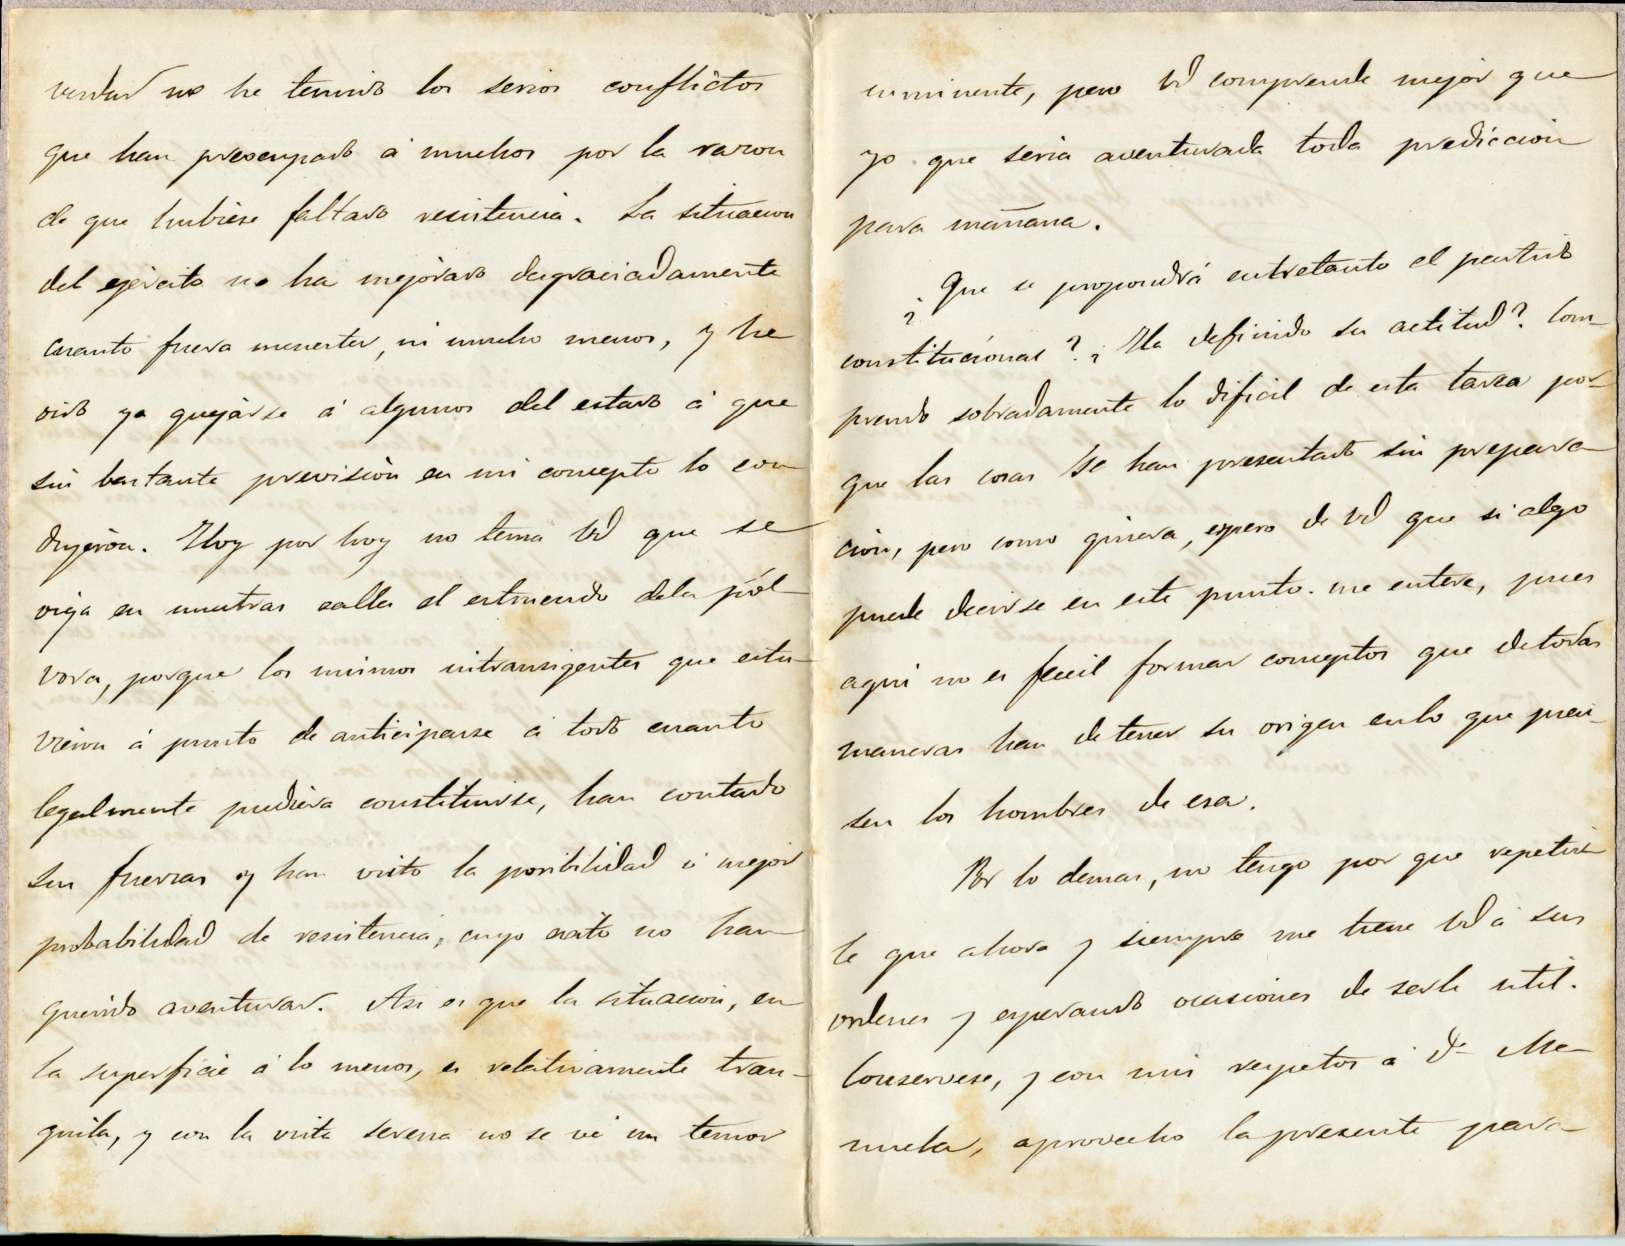 verdad no he temido los serios conflictos
que han preocupado á muchos por la razon
de que hubiese faltado resistencia. La situacion
del ejército no ha mejorado desgraciadamente
cuanto fuera menester, ni mucho menos, y he
oido ya quejarse á algunos del estado á que
sin bastante prevision en mi concepto lo con
dujeron. Hoy por hoy no tema Vd que se
oiga en nuestras calles el estruendo dela pól-
vora, porque los mismos intransigentes que estu-
vieron á punto de anticiparse á todo cuanto
legalmente pudiera constituirse, han contado
sus fuerzas y han visto la posibilidad ó mejor
probabilidad de resistencia, cuyo éxito no han
querido aventurar. Asi es que la situacion, en
la superficie á lo menos, es relativamente tran-
quila, y con la vista serena no se vé un temor
inminente, pero Vd comprende mejor que
yo que seria aventurada toda prediccion
para mañana.
¿Que se propondrá entretanto el partido
constitucional? ¿Ha definido su actitud? Com-
prendo sobradamente lo dificil de esta tarea por-
que las cosas se han presentado sin prepara
cion, pero como quiera, espero de Vd que si algo
puede decirse en este punto me entere, pues
aqui no es facil formar conceptos que detodas
maneras han detener su origen enlo que pien-
sen los hombres de esa.
Por lo demas, no tengo por que repetir
le que ahora y siempre me tiene Vd á sus
ordenes y esperando ocasiones de serle util.
Conservese, y con mis respetos á Dª Ma-
nuela, aprovecho la presente para